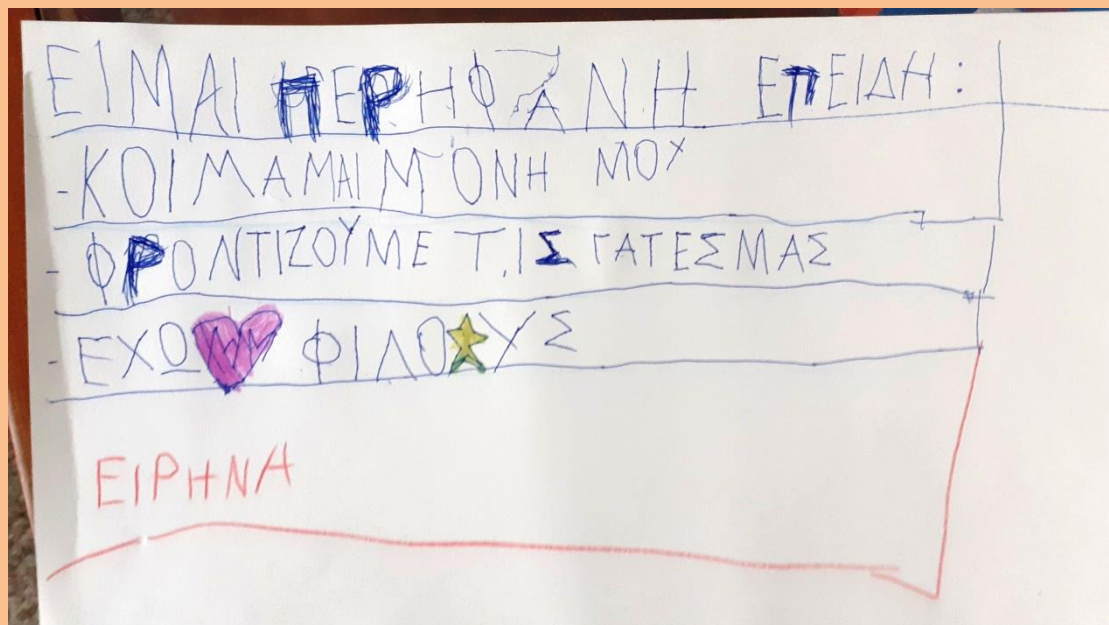 ΕΙΜΑΙ ΠΕΡΗΦΑΝΗ ΕΠΕΙΔΗ:
-ΚΟΙΜΑΜΑΙ ΜΟΝΗ ΜΟΥ
- ΦΡΟΝΤΙΖΟΥΜΕ ΤΙΣ ΓΑΤΕΣ ΜΑΣ
- ΕΧΩ ΦΙΛΟΥΣ
ΕΙΡΗΝΑ